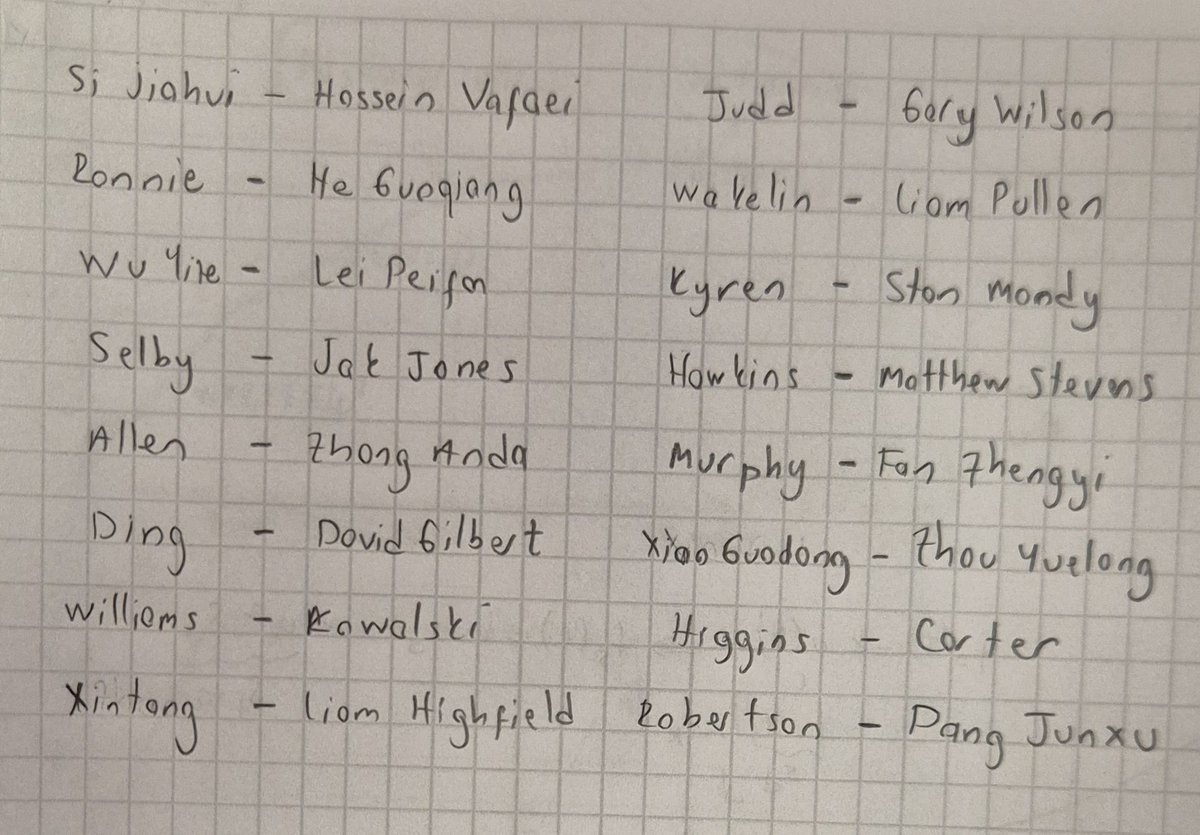 Si Jiahui - Hossein Vafaei
Ronnie - He Guoqiang
Wu Yize - Lei Peifan
Selby - Jak Jones
Allen - Zhang Anda
Ding - David Gilbert
Williams - Kowalski
Xintong - Liam Highfield
Judd - Gary Wilson
Wakelin - Liam Pullen
Kyren - Stan Moody
Hawkins - Matthew Stevens
Murphy - Fan Zhengyi
Xiao Guodong - Zhou Yuelong
Higgins - Carter
Robertson - Pang Junxu